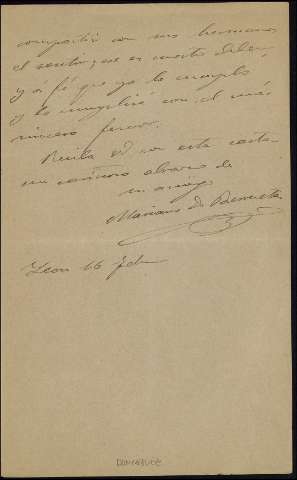 compartir con sus hermanos
el sento que es nuestro deber,
y a fé que yo lo cumplo
y lo cumpliré con el más
sincero fervor.
Reciba Vd con esta carta
un cariñoso abrazo de
su amigo
Mariano D. Berrueta
León 16 feb